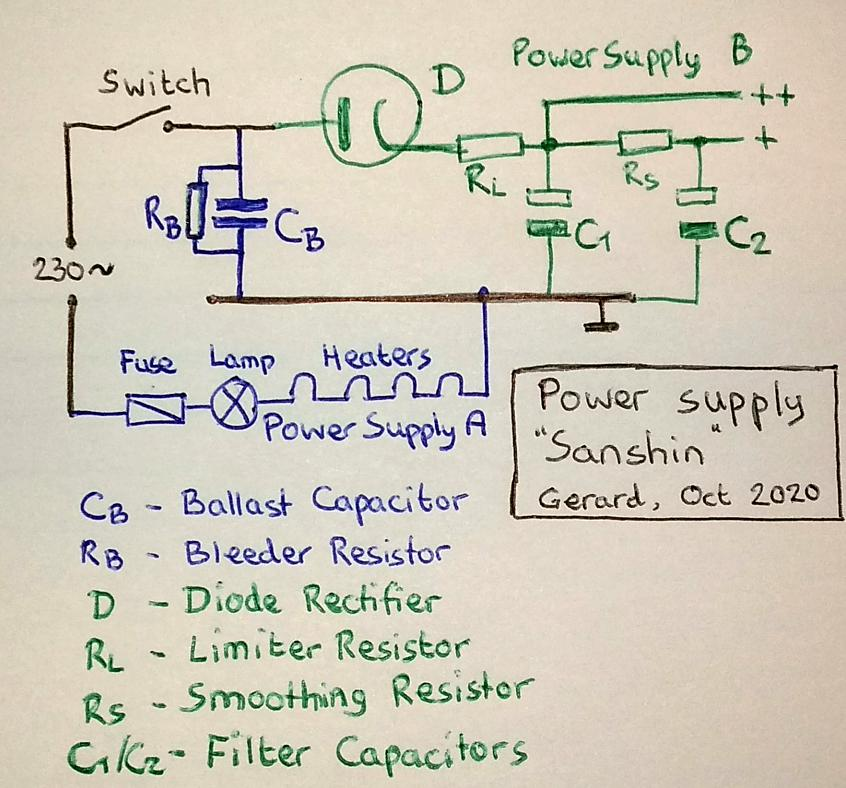 Power Supply B
Switch
D
++
+
RL
Rs
RB
CB
C1
C2
230~
Fuse
Lamp
Heaters
Power Supply A
Power supply
"Sanshin"
Gerard, Oct 2020
CB - Ballast Capacitor
RB - Bleeder Resistor
D - Diode Rectifier
RL - Limiter Resistor
Rs - Smoothing Resistor
C1/C2 - Filter Capacitors